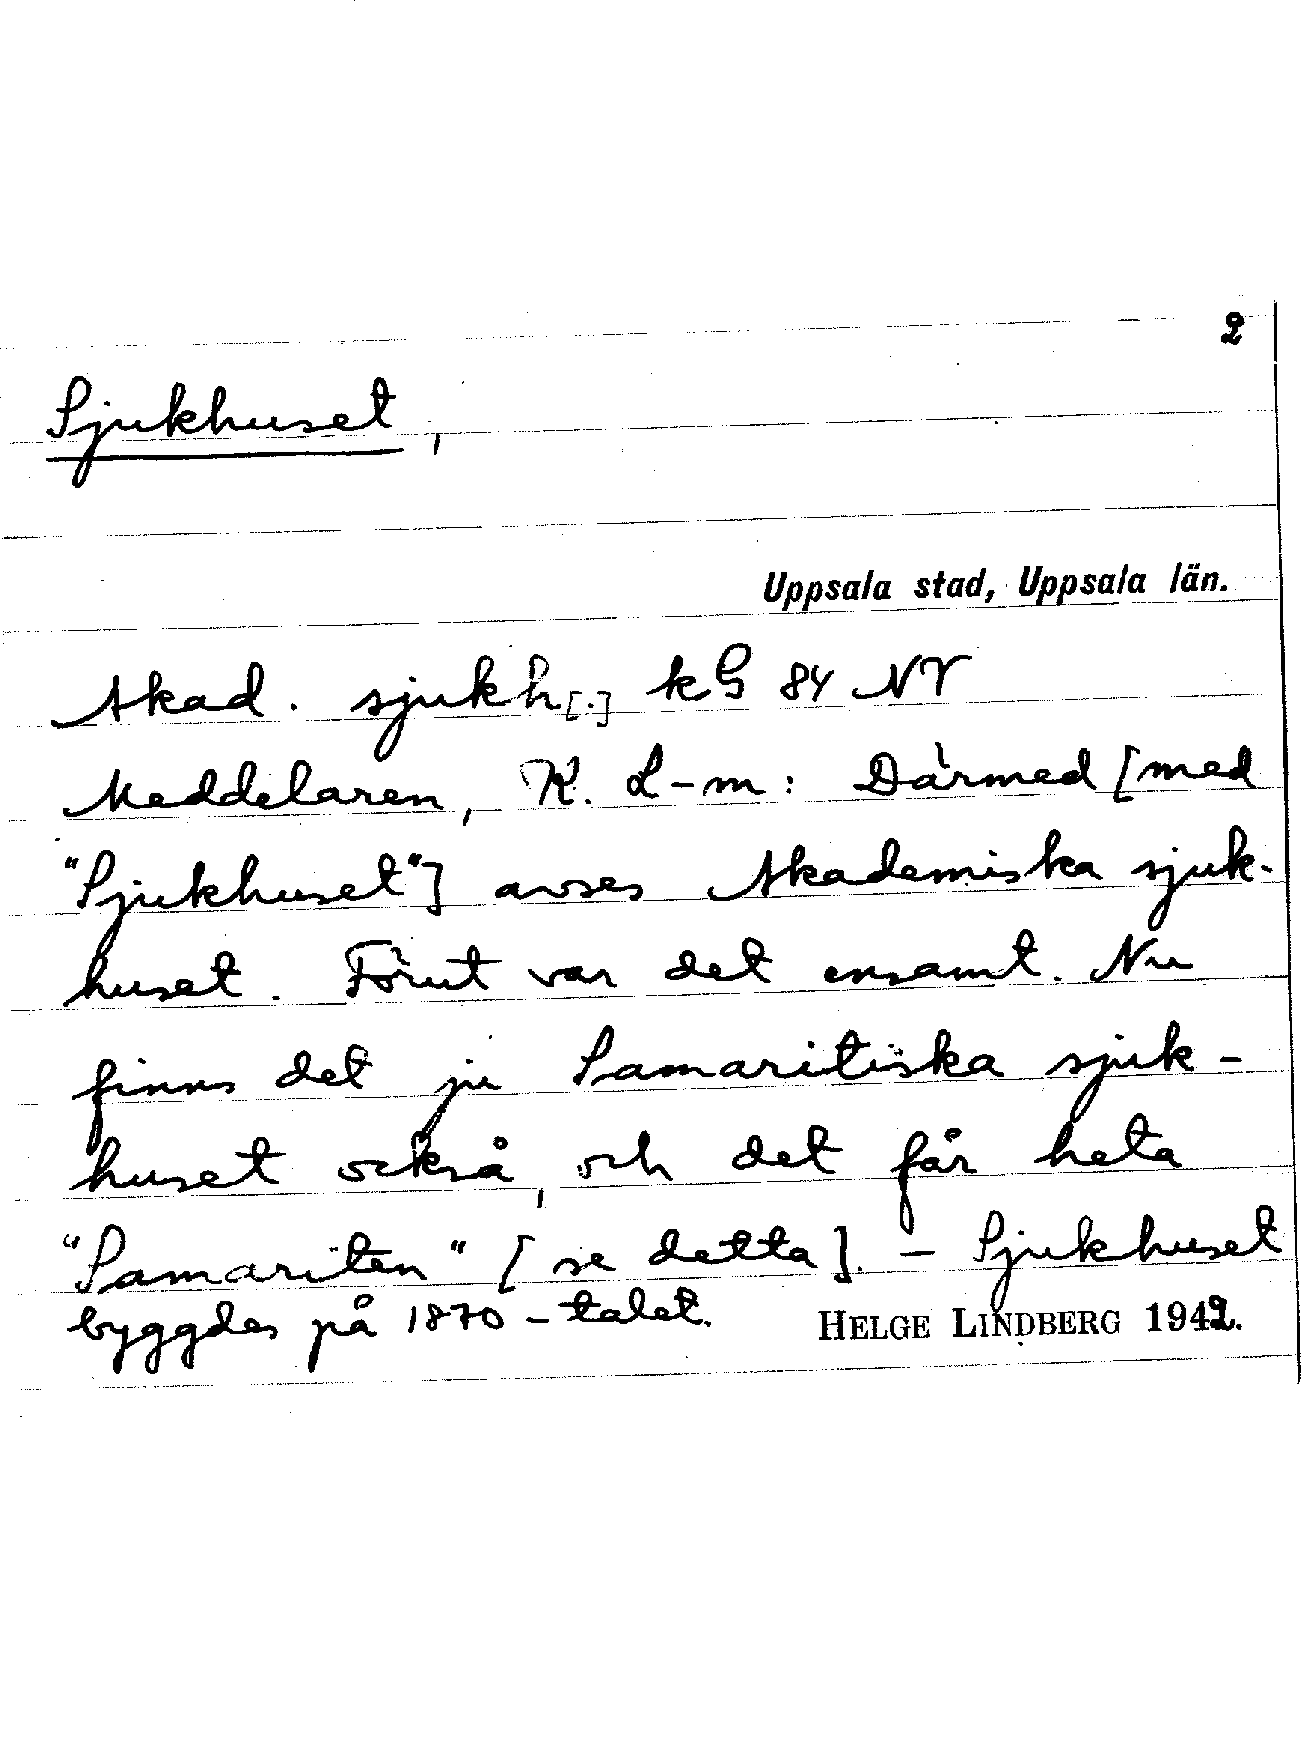 2
Sjukhuset,
Uppsala stad, Uppsala län.
Akad. sjukh[.] kG 84 NV
Meddelaren, K. L-m: Därmed [med
"Sjukhuset"] avses Akademiska sjuk-
huset. Förut var det ensamt. Nu
finns det ju Samaritiska sjuk-
huset också, och det får heta
"Samariten" [se detta]. – Sjukhuset
byggdes på 1870-talet. HELGE LINDBERG 1942.